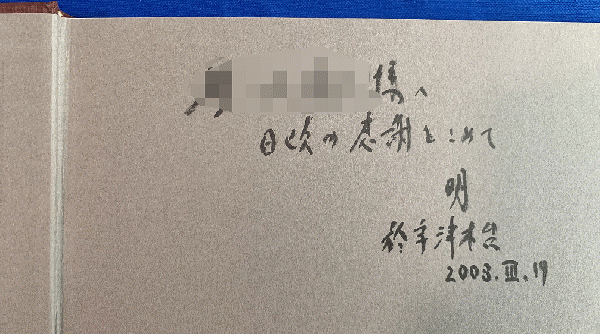 様へ
日頃の感謝をこめて
明
於宇津木台
2003.Ⅲ.19